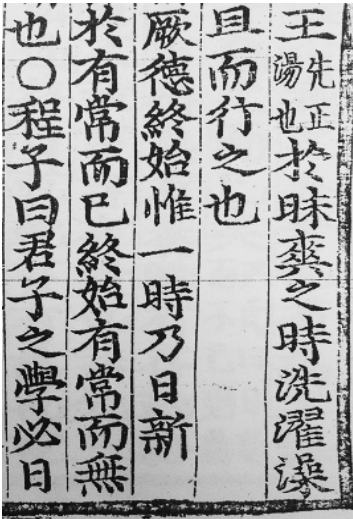 王先正湯也於昧爽之時洗濯澡
且而行之也
厥德終始惟一時乃日新
於有常而已終始有常而無
也○程子曰君子之學必日